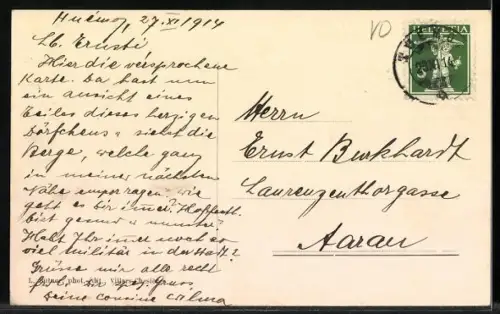 Huémoz, 27.XI 1914
Lb. Ernsti
Hier die versprochene
Karte. Da hast nun
ein ansicht eines
Teiles dieses herzigen
Dörfchens u siehst die
Berge, welche ganz
in meiner nächsten
Nähe emporragen. wie
geht es dir immer? Hoffentl.
bist gesund u munter?
Habt Ihr immer noch so
viel militär in der Stadt?
Grüsse mir alle recht
Deine cousine Alma
VO
HELVETIA
Herrn
Ernst Burkhardt
Laurenzenthorgasse
Aarau
phot. édit.